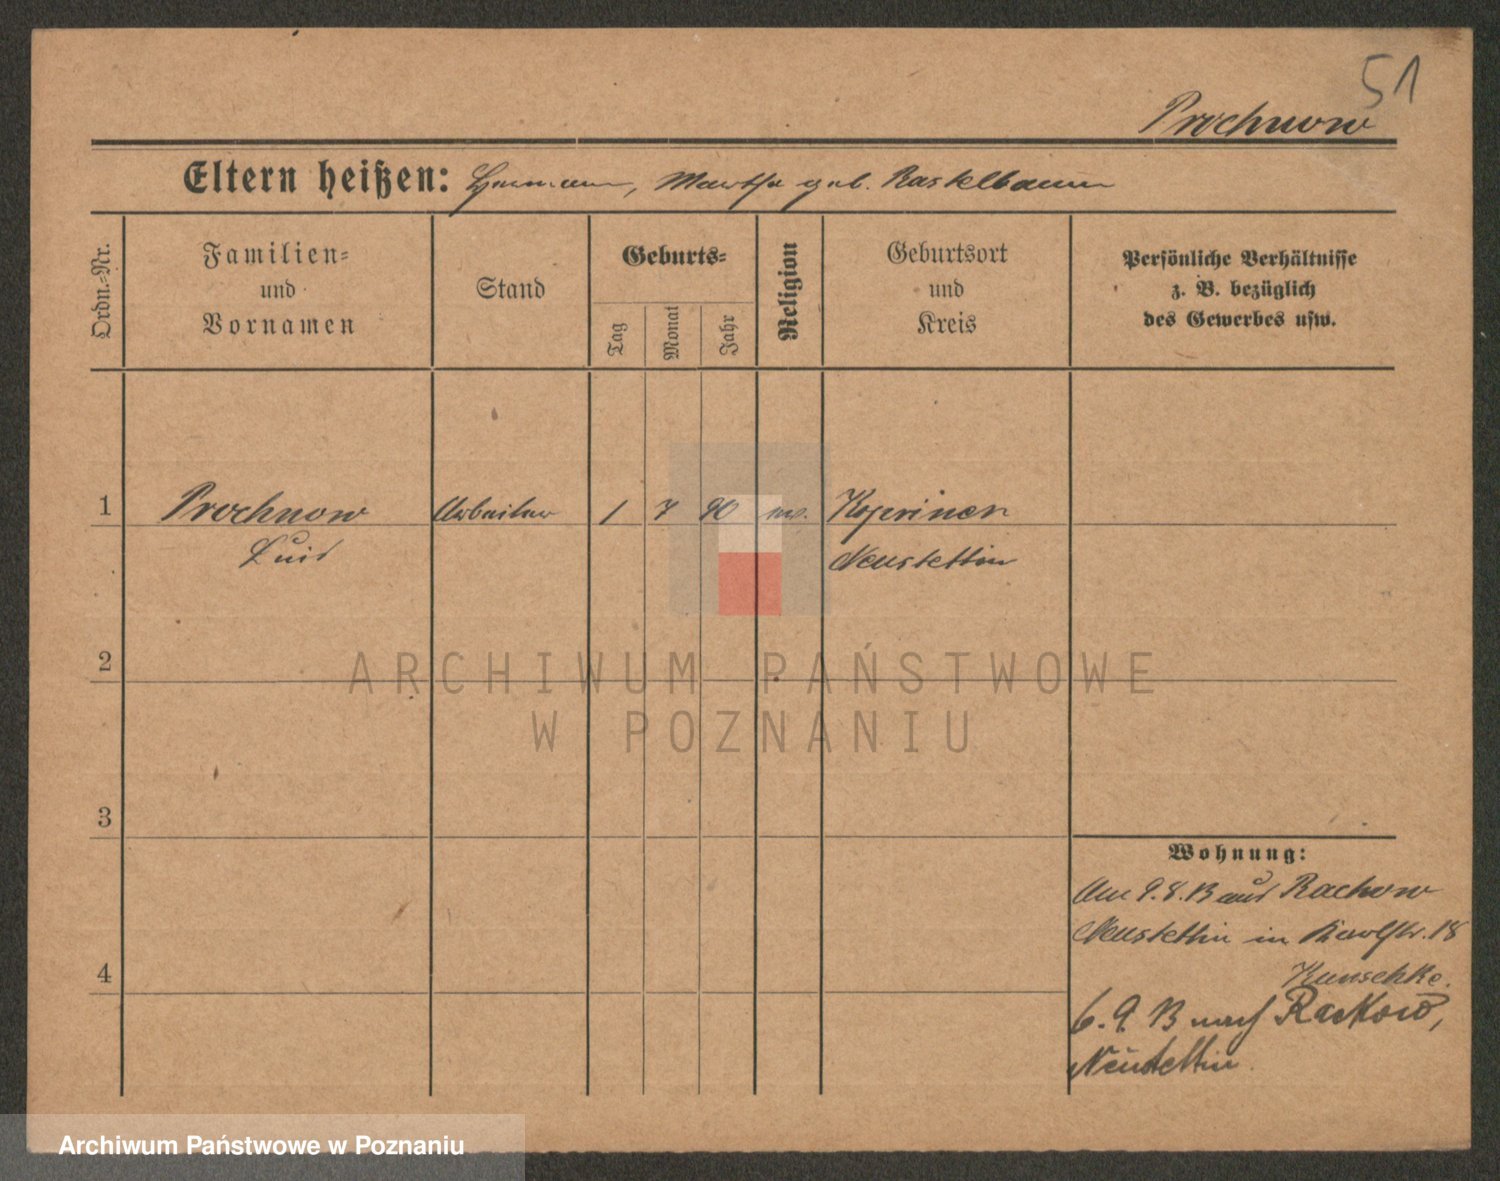 51
Prochnow
Eltern heißen: Hermann, Martha geb. Rastelbaum
Ordn.-Nr.
Familien-
und
Vornamen
Stand
Geburts-
Tag
Monat
Jahr
Religion
Geburtsort
und
Kreis
Persönliche Verhältnisse
z. B. bezüglich
des Gewerbes usw.
1 Prochnow Arbeiter 1 7 90
Neustettin
2
3
4
Wohnung:
Am 9.8.13 aus Rackow
Neustettin in 18
Kunschke.
6.9.13 nach Rackow,
Neustettin.
ARCHIWUM PAŃSTWOWE
W POZNANIU
Archiwum Państwowe w Poznaniu